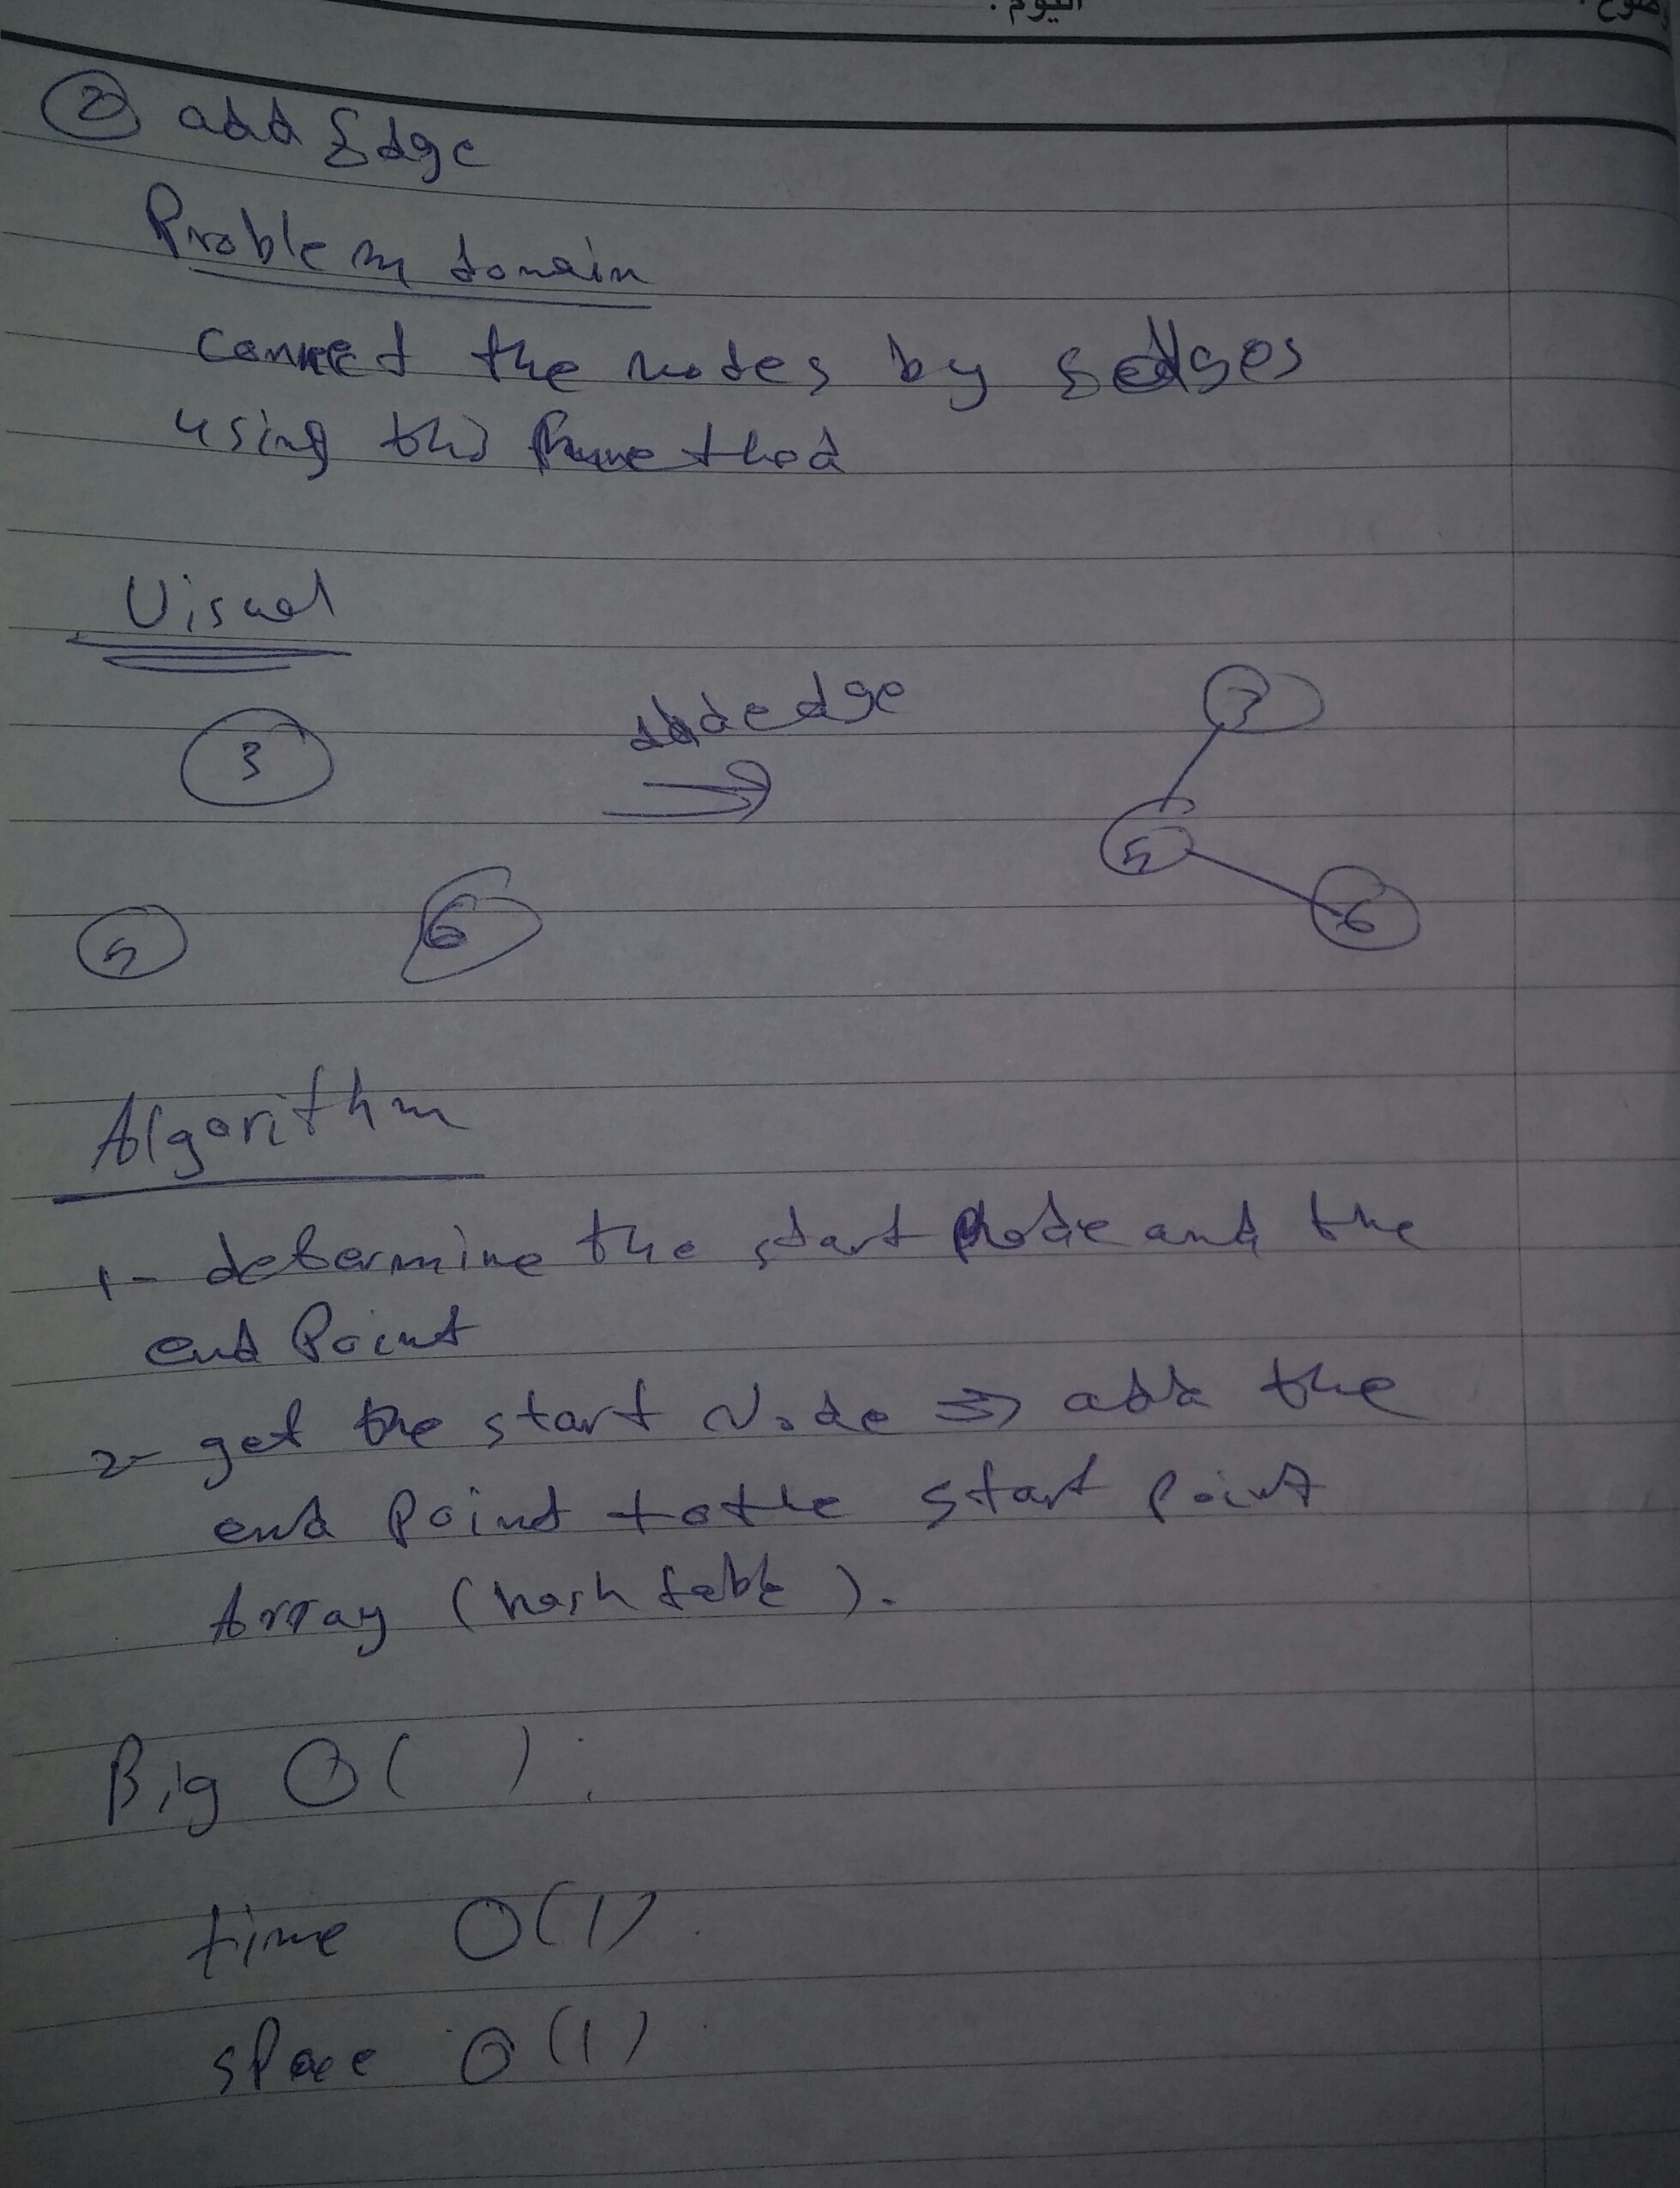 اليوم :
② add Edge
Problem domain
connect the nodes by edges
using this method
Visual
3
add edge
3
5
6
5
6
Algorithm
1- determine the start Node and the
end Point
2- get the start Node => add the
end Point to the start point
Array (hash table).
Big O( ) :
time O(1)
space O(1)